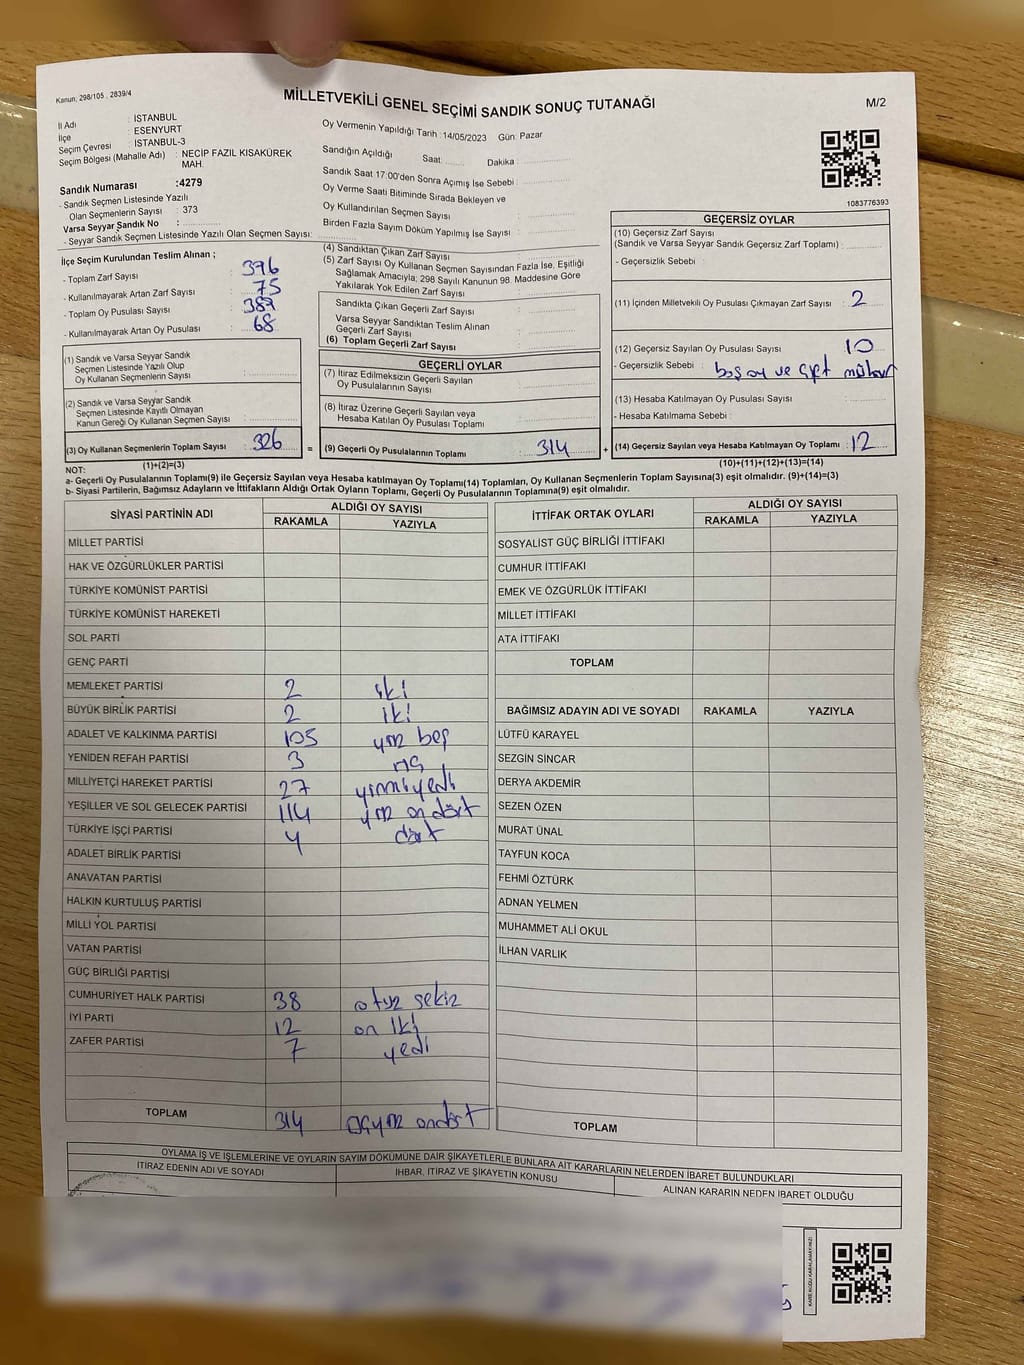 Kanun, 298/105 , 2839/4
MİLLETVEKİLİ GENEL SEÇİMİ SANDIK SONUÇ TUTANAĞI
M/2
İl Adı : İSTANBUL
İlçe : ESENYURT
Seçim Çevresi : İSTANBUL-3
Seçim Bölgesi (Mahalle Adı) : NECİP FAZIL KISAKÜREK
MAH.
Sandık Numarası :4279
- Sandık Seçmen Listesinde Yazılı
Olan Seçmenlerin Sayısı : 373
Varsa Seyyar Sandık No :
- Seyyar Sandık Seçmen Listesinde Yazılı Olan Seçmen Sayısı:
Oy Vermenin Yapıldığı Tarih : 14/05/2023 Gün: Pazar
Sandığın Açıldığı Saat: Dakika :
Sandık Saat 17:00'den Sonra Açımış İse Sebebi :
Oy Verme Saati Bitiminde Sırada Bekleyen ve
Oy Kullandırılan Seçmen Sayısı
Birden Fazla Sayım Döküm Yapılmış İse Sayısı :
1083776393
İlçe Seçim Kurulundan Teslim Alınan ;
- Toplam Zarf Sayısı :
- Kullanılmayarak Artan Zarf Sayısı : 75
- Toplam Oy Pusulası Sayısı :
- Kullanılmayarak Artan Oy Pusulası : 68
(1) Sandık ve Varsa Seyyar Sandık
Seçmen Listesinde Yazılı Olup
Oy Kullanan Seçmenlerin Sayısı :
(2) Sandık ve Varsa Seyyar Sandık
Seçmen Listesinde Kayıtlı Olmayan
Kanun Gereği Oy Kullanan Seçmen Sayısı :
(3) Oy Kullanan Seçmenlerin Toplam Sayısı : 326 =
(1)+(2)=(3)
(4) Sandıktan Çıkan Zarf Sayısı :
(5) Zarf Sayısı Oy Kullanan Seçmen Sayısından Fazla İse, Eşitliği
Sağlamak Amacıyla; 298 Sayılı Kanunun 98. Maddesine Göre
Yakılarak Yok Edilen Zarf Sayısı :
Sandıkta Çıkan Geçerli Zarf Sayısı :
Varsa Seyyar Sandıktan Teslim Alınan
Geçerli Zarf Sayısı :
(6) Toplam Geçerli Zarf Sayısı :
GEÇERLİ OYLAR
(7) İtiraz Edilmeksizin Geçerli Sayılan
Oy Pusulalarının Sayısı :
(8) İtiraz Üzerine Geçerli Sayılan veya
Hesaba Katılan Oy Pusulası Toplamı :
(9) Geçerli Oy Pusulalarının Toplamı : 314 +
GEÇERSİZ OYLAR
(10) Geçersiz Zarf Sayısı
(Sandık ve Varsa Seyyar Sandık Geçersiz Zarf Toplamı) :
- Geçersizlik Sebebi :
(11) İçinden Milletvekili Oy Pusulası Çıkmayan Zarf Sayısı : 2
(12) Geçersiz Sayılan Oy Pusulası Sayısı : 10
- Geçersizlik Sebebi : boş oy ve çift mühür
(13) Hesaba Katılmayan Oy Pusulası Sayısı :
- Hesaba Katılmama Sebebi :
(14) Geçersiz Sayılan veya Hesaba Katılmayan Oy Toplamı : 12
(10)+(11)+(12)+(13)=(14)
NOT:
a- Geçerli Oy Pusulalarının Toplamı(9) ile Geçersiz Sayılan veya Hesaba katılmayan Oy Toplamı(14) Toplamları, Oy Kullanan Seçmenlerin Toplam Sayısına(3) eşit olmalıdır. (9)+(14)=(3)
b- Siyasi Partilerin, Bağımsız Adayların ve İttifakların Aldığı Ortak Oyların Toplamı, Geçerli Oy Pusulalarının Toplamına(9) eşit olmalıdır.
SİYASİ PARTİNİN ADI ALDIĞI OY SAYISI
RAKAMLA YAZIYLA
MİLLET PARTİSİ
HAK VE ÖZGÜRLÜKLER PARTİSİ
TÜRKİYE KOMÜNİST PARTİSİ
TÜRKİYE KOMÜNİST HAREKETİ
SOL PARTİ
GENÇ PARTİ
MEMLEKET PARTİSİ 2 iki
BÜYÜK BİRLİK PARTİSİ 2 iki
ADALET VE KALKINMA PARTİSİ 105 yüz beş
YENİDEN REFAH PARTİSİ 3 üç
MİLLİYETÇİ HAREKET PARTİSİ 27 yirmiyedi
YEŞİLLER VE SOL GELECEK PARTİSİ 114 yüz on dört
TÜRKİYE İŞÇİ PARTİSİ 4 dört
ADALET BİRLİK PARTİSİ
ANAVATAN PARTİSİ
HALKIN KURTULUŞ PARTİSİ
MİLLİ YOL PARTİSİ
VATAN PARTİSİ
GÜÇ BİRLİĞİ PARTİSİ
CUMHURİYET HALK PARTİSİ 38 otuz sekiz
İYİ PARTİ 12 on iki
ZAFER PARTİSİ 7 yedi
TOPLAM 314 üçyüz ondört
İTTİFAK ORTAK OYLARI ALDIĞI OY SAYISI
RAKAMLA YAZIYLA
SOSYALİST GÜÇ BİRLİĞİ İTTİFAKI
CUMHUR İTTİFAKI
EMEK VE ÖZGÜRLÜK İTTİFAKI
MİLLET İTTİFAKI
ATA İTTİFAKI
TOPLAM
BAĞIMSIZ ADAYIN ADI VE SOYADI RAKAMLA YAZIYLA
LÜTFÜ KARAYEL
SEZGİN SİNCAR
DERYA AKDEMİR
SEZEN ÖZEN
MURAT ÜNAL
TAYFUN KOCA
FEHMİ ÖZTÜRK
ADNAN YELMEN
MUHAMMET ALİ OKUL
İLHAN VARLIK
TOPLAM
OYLAMA İŞ VE İŞLEMLERİNE VE OYLARIN SAYIM DÖKÜMÜNE DAİR ŞİKAYETLERLE BUNLARA AİT KARARLARIN NELERDEN İBARET BULUNDUKLARI
İTİRAZ EDENİN ADI VE SOYADI İHBAR, İTİRAZ VE ŞİKAYETİN KONUSU ALINAN KARARIN NEDEN İBARET OLDUĞU